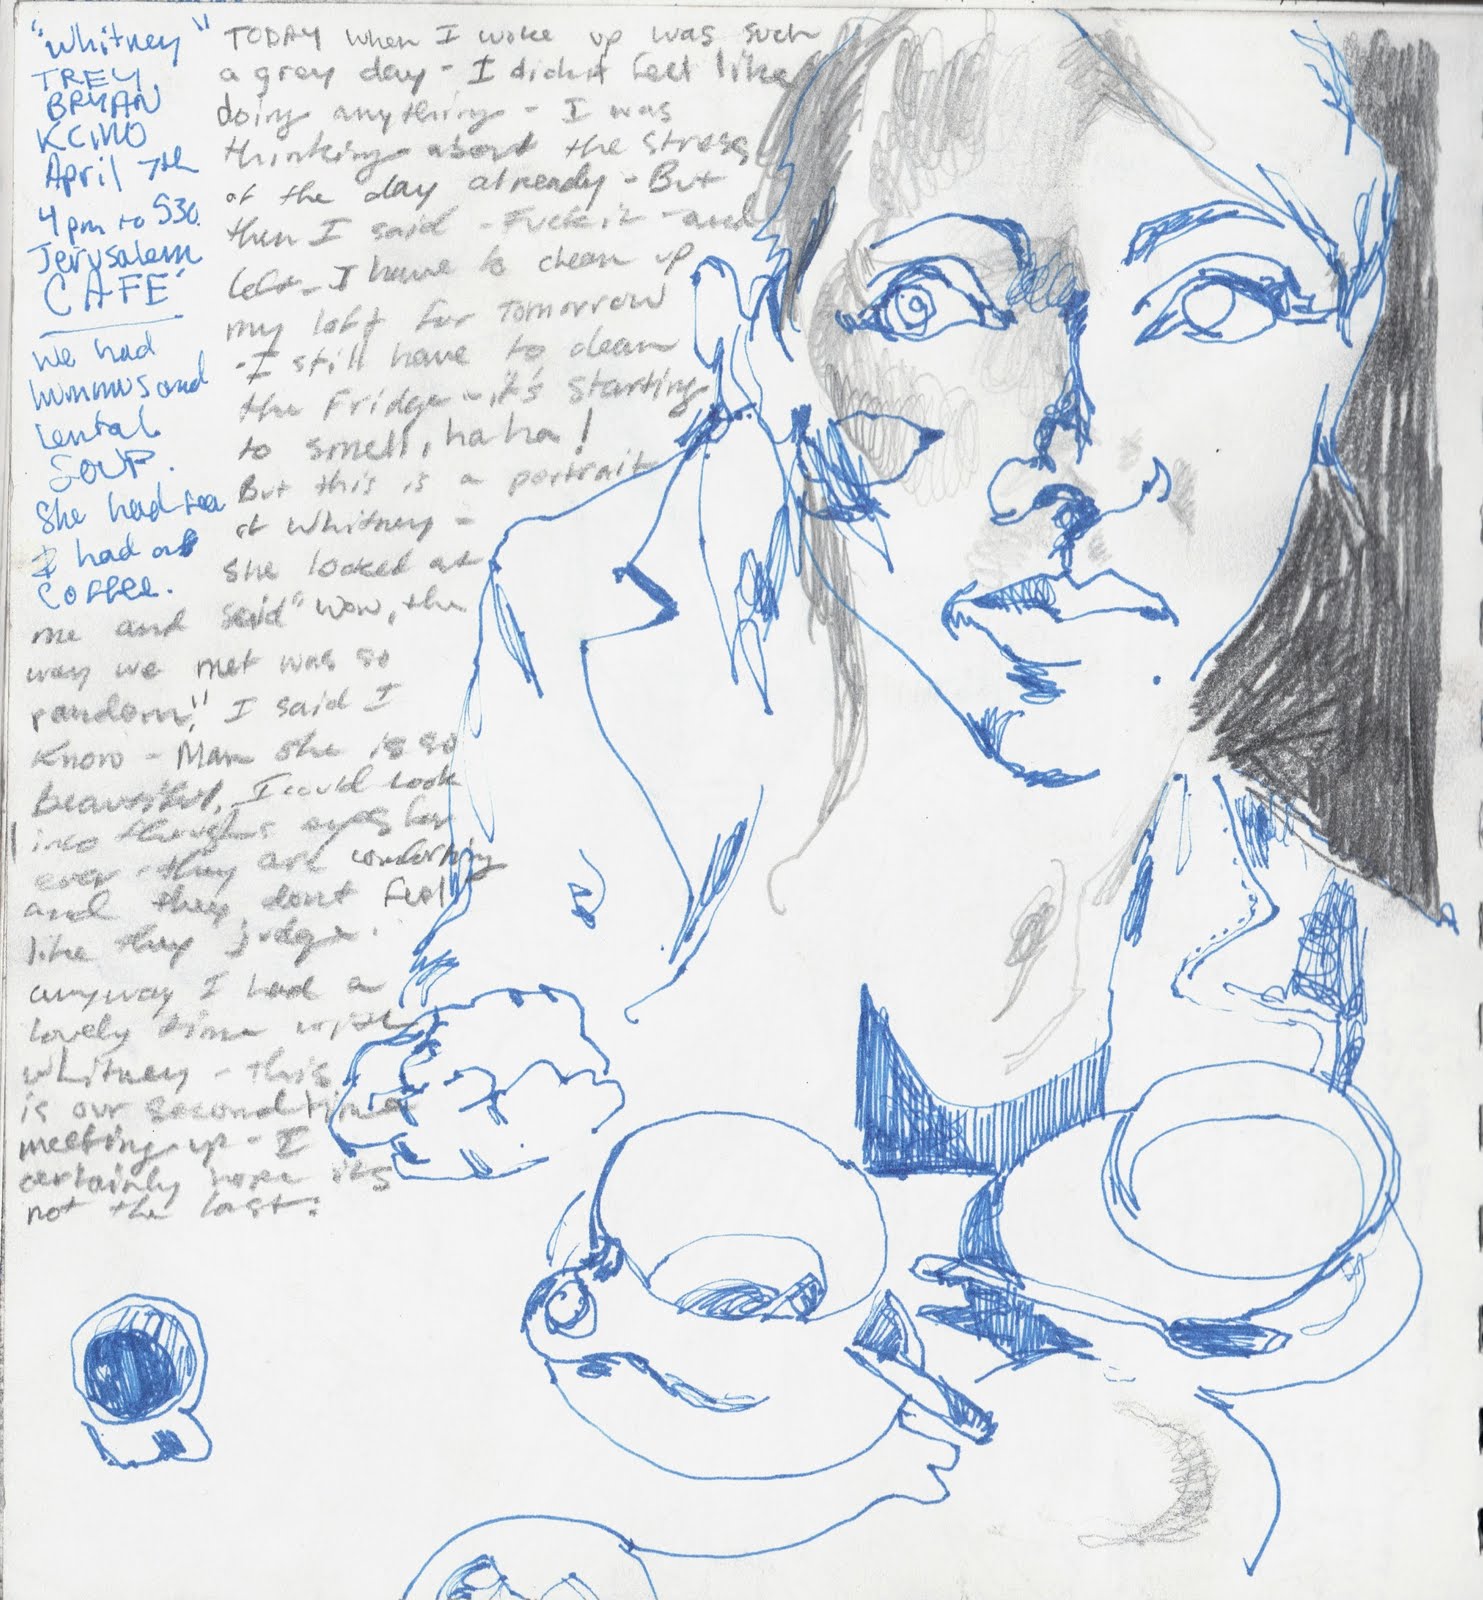 "Whitney"
TREY
BRYAN
KCMO
April 7th
4pm to 530.
Jerusalem
CAFE'
we had
hummus and
lental
SOUP.
She had tea
I had a
COFFEE.
TODAY when I woke up was such
a grey day - I didn't feel like
doing anything - I was
thinking about the stress
of the day already - But
then I said - Fuck it - and
left - I have to clean up
my loft for Tomorrow
- I still have to clean
the Fridge - it's starting
to smell, haha!
But this is a portrait
of Whitney -
she looked at
me and said "Wow, the
way we met was so
random," I said I
know - Man she is so
beautiful, I could look
into thoughs eyes for
ever - they are comforting
and they dont feel
like they judge.
anyway I had a
lovely time with
Whitney - this
is our second time
meeting up - I
certainly hope its
not the last: